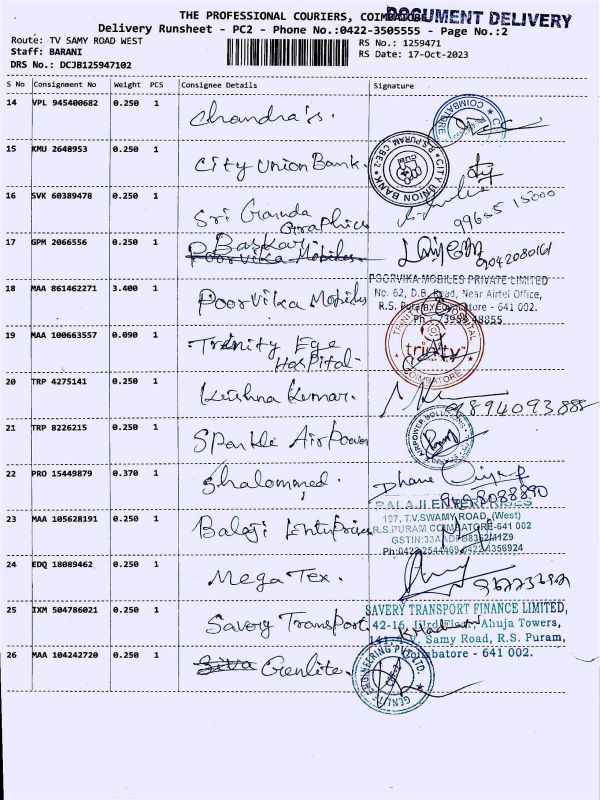 THE PROFESSIONAL COURIERS, COIMBATORE
DOCUMENT DELIVERY
Delivery Runsheet - PC2 - Phone No.:0422-3505555 - Page No.:2
Route: TV SAMY ROAD WEST
RS No.: 1259471
Staff: BARANI
RS Date: 17-Oct-2023
DRS No.: DCJB125947102
S No Consignment No Weight PCS Consignee Details Signature
14 VPL 945400682 0.250 1 Chandra's.
COIMBATORE
15 KMU 2648953 0.250 1 City Union Bank.
CITY UNION BANK R.S.PURAM CBE-2
16 SVK 60389478 0.250 1 Sri Garuda Graphics
99655 15000
17 GPM 2066556 0.250 1 Baskar
Poorvika Mobiles
18 MAA 861462271 3.400 1 Poorvika Mobiles
POORVIKA MOBILES PRIVATE LIMITED
No. 62, D.B. Road, Near Airtel Office,
R.S. Puram, Coimbatore - 641 002.
Ph : 73958 48855
19 MAA 100663557 0.090 1 Trinity Eye Hospital
trinity
COIMBATORE
20 TRP 4275141 0.250 1 Krishna Kumar.
21 TRP 8226215 0.250 1 Sparkle Air Power
AIRPOWER SOLUTIONS
22 PRO 15449879 0.370 1 Shalommed.
23 MAA 105628191 0.250 1 Balaji Enterprises
BALAJI ENTERPRISES
197, T.V.SWAMY ROAD, (West)
R.S.PURAM, COIMBATORE-641 002
Ph:0422 2544469, 0422 4356924
24 EDQ 18089462 0.250 1 Mega Tex.
25 IXM 504786021 0.250 1 Savery Transport
SAVERY TRANSPORT FINANCE LIMITED,
42-16, IIIrd Floor, Ahuja Towers,
Samy Road, R.S. Puram,
Coimbatore - 641 002.
26 MAA 104242720 0.250 1 Siva Genlite.
GENLITE ENGINEERING PVT LTD